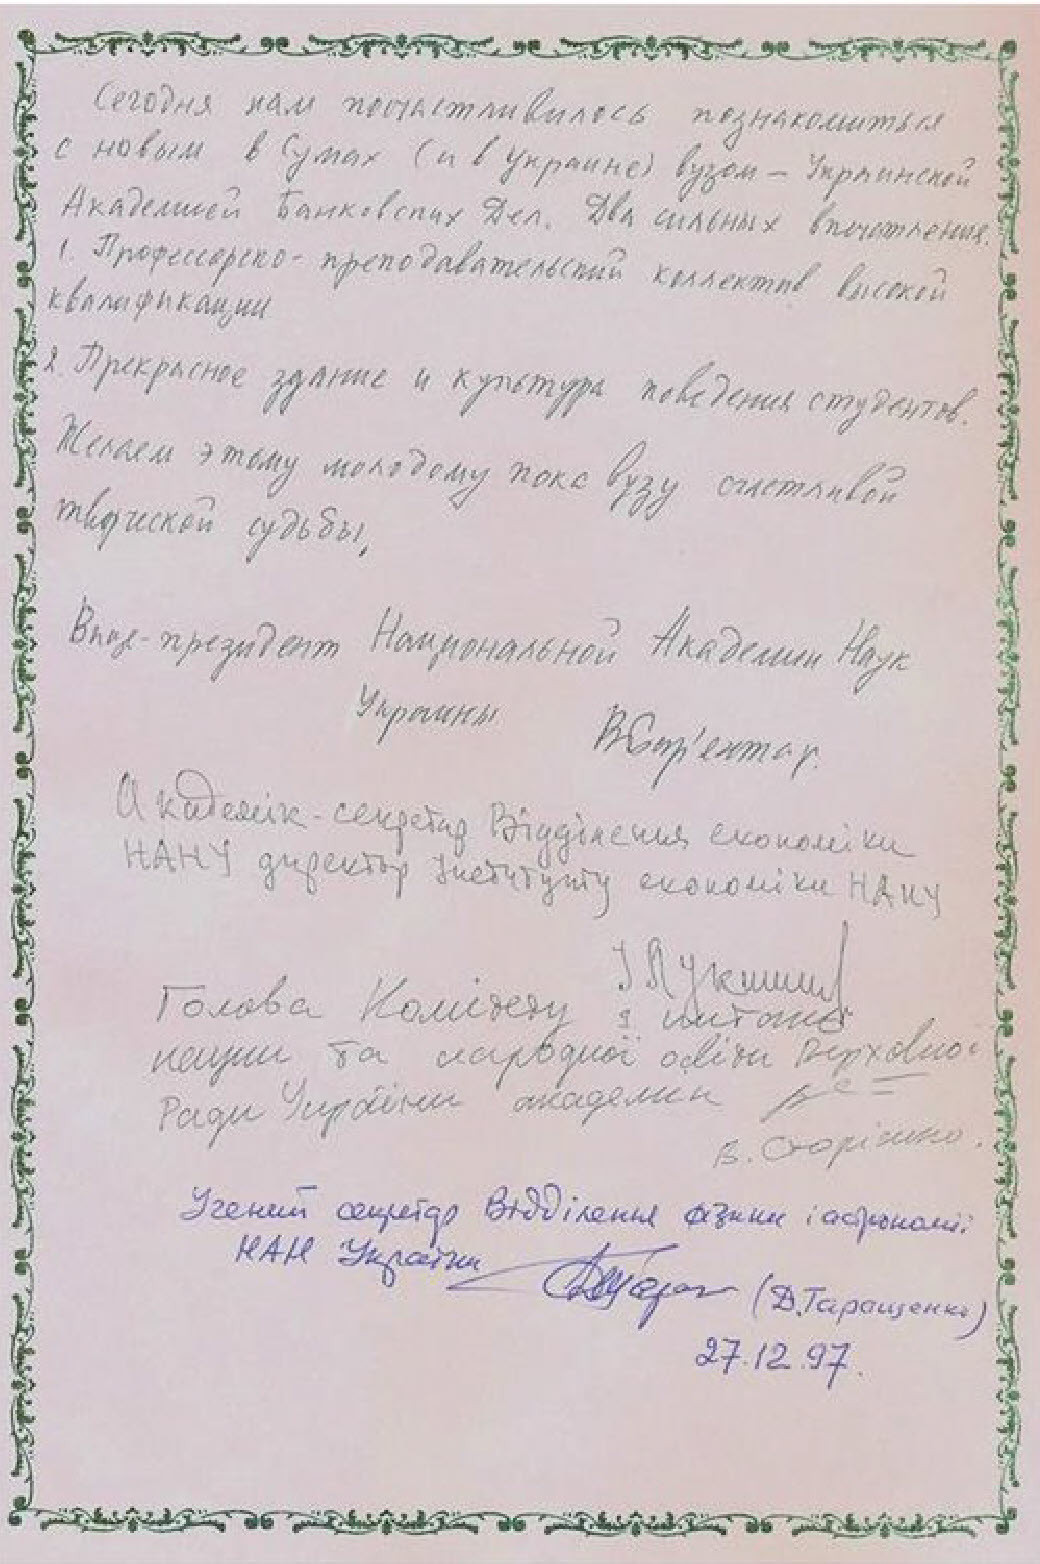 Сегодня нам посчастливилось познакомиться
с новым в Сумах (и в Украине) вузом – Украинской
Академией Банковских Дел. Два сильных впечатления.
1. Профессорско-преподавательский коллектив высокой
квалификации
2. Прекрасное здание и культура поведения студентов.
Желаем этому молодому пока вузу счастливой
творческой судьбы.
Вице-президент Национальной Академии Наук
Украины В Бар'яхтар.
Академік-секретар Відділення економіки
НАНУ директор Інституту економіки НАНУ
І Лукінов
Голова Комітету з питань
науки та народної освіти Верховної
Ради України академик
В. Сторіжко.
Учений секретар Відділення фізики і астрономії
НАН України (Д. Таращенко)
27.12.97.